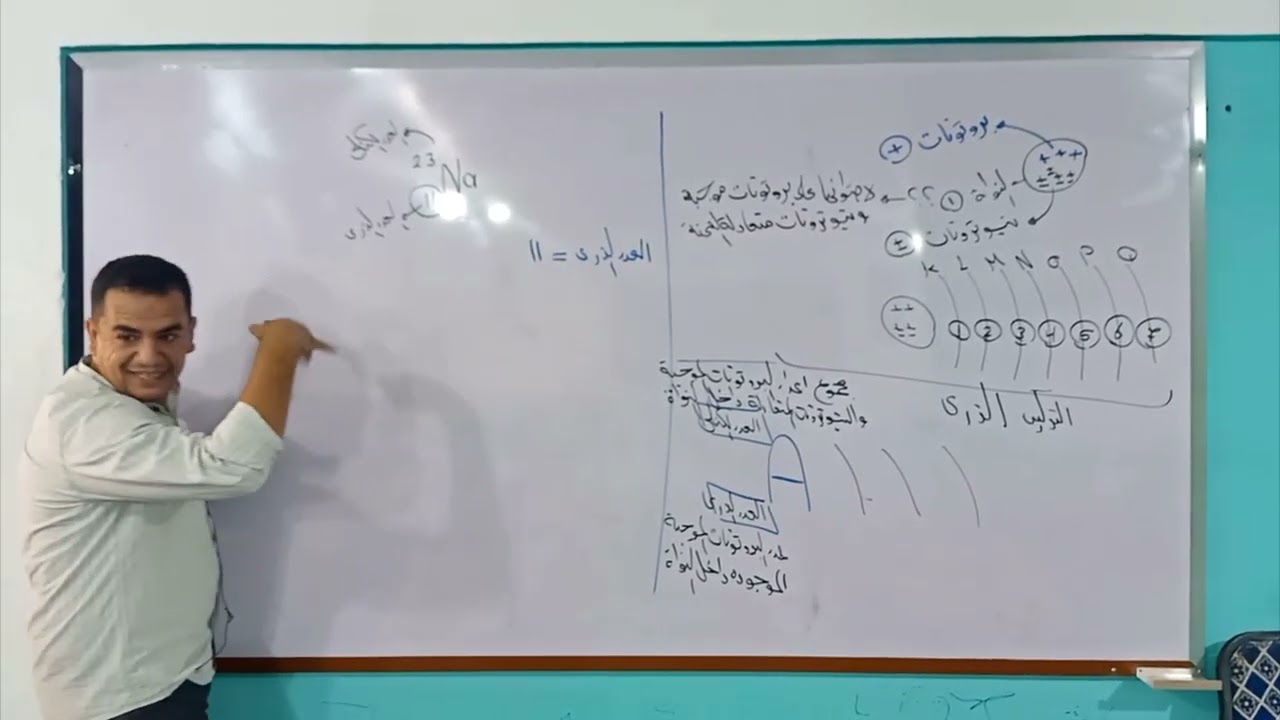 بروتونات +
+ + +
± ± ± ±
النواة ① ؟؟ لاحتوائها على بروتونات موجبة
ونيوترونات متعادلة الشحنة
نيوترونات ±
K L M N O P Q
1 2 3 4 5 6 7
التركيب الذرى
مجموع اعداد البروتونات الموجبة
والنيوترونات المتعادلة داخل النواة
العدد الكتلى
A
العدد الذرى
عدد البروتونات الموجبة
الموجوده داخل النواة
العدد الكتلى
23
Na
العدد الذرى
العدد الذرى = 11